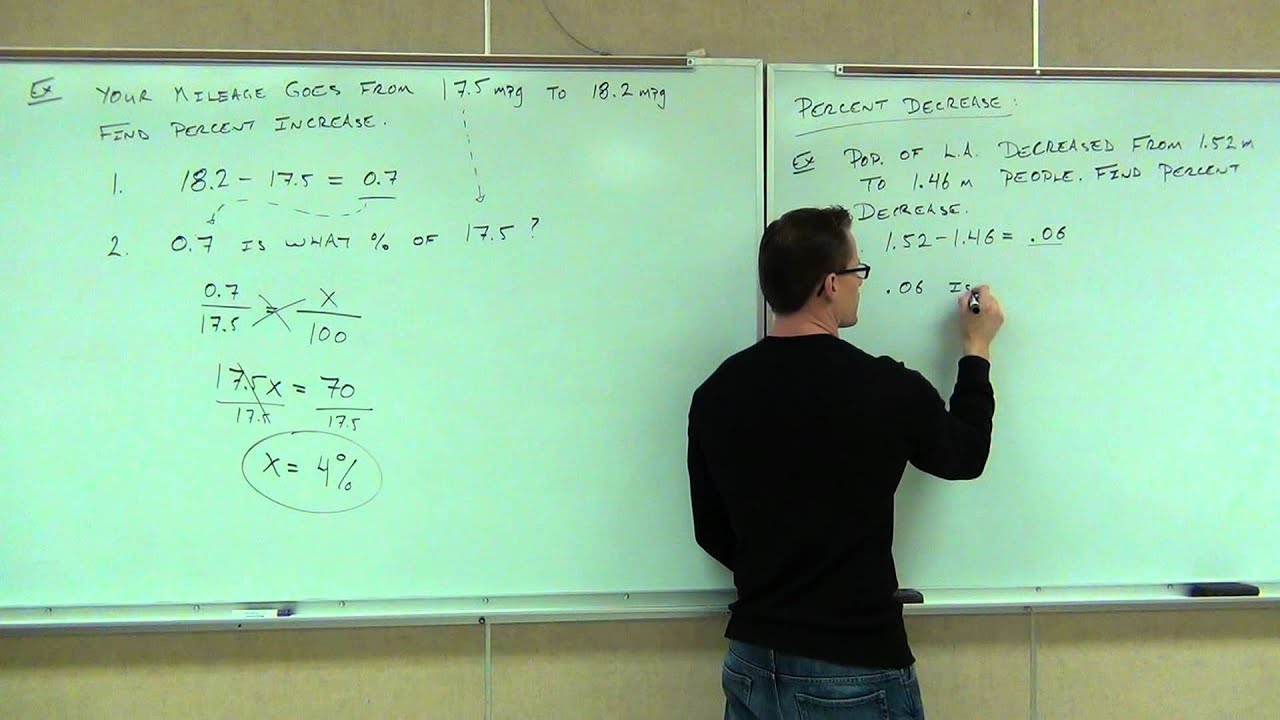 Ex YOUR MILEAGE GOES FROM 17.5 mpg TO 18.2 mpg
FIND PERCENT INCREASE.
1. 18.2 - 17.5 = 0.7
2. 0.7 IS WHAT % OF 17.5 ?
0.7/17.5 = X/100
17.5X/17.5 = 70/17.5
X = 4%
PERCENT DECREASE:
Ex POP. OF L.A. DECREASED FROM 1.52 m
TO 1.46 m PEOPLE. FIND PERCENT
DECREASE.
1.52 - 1.46 = .06
.06 IS